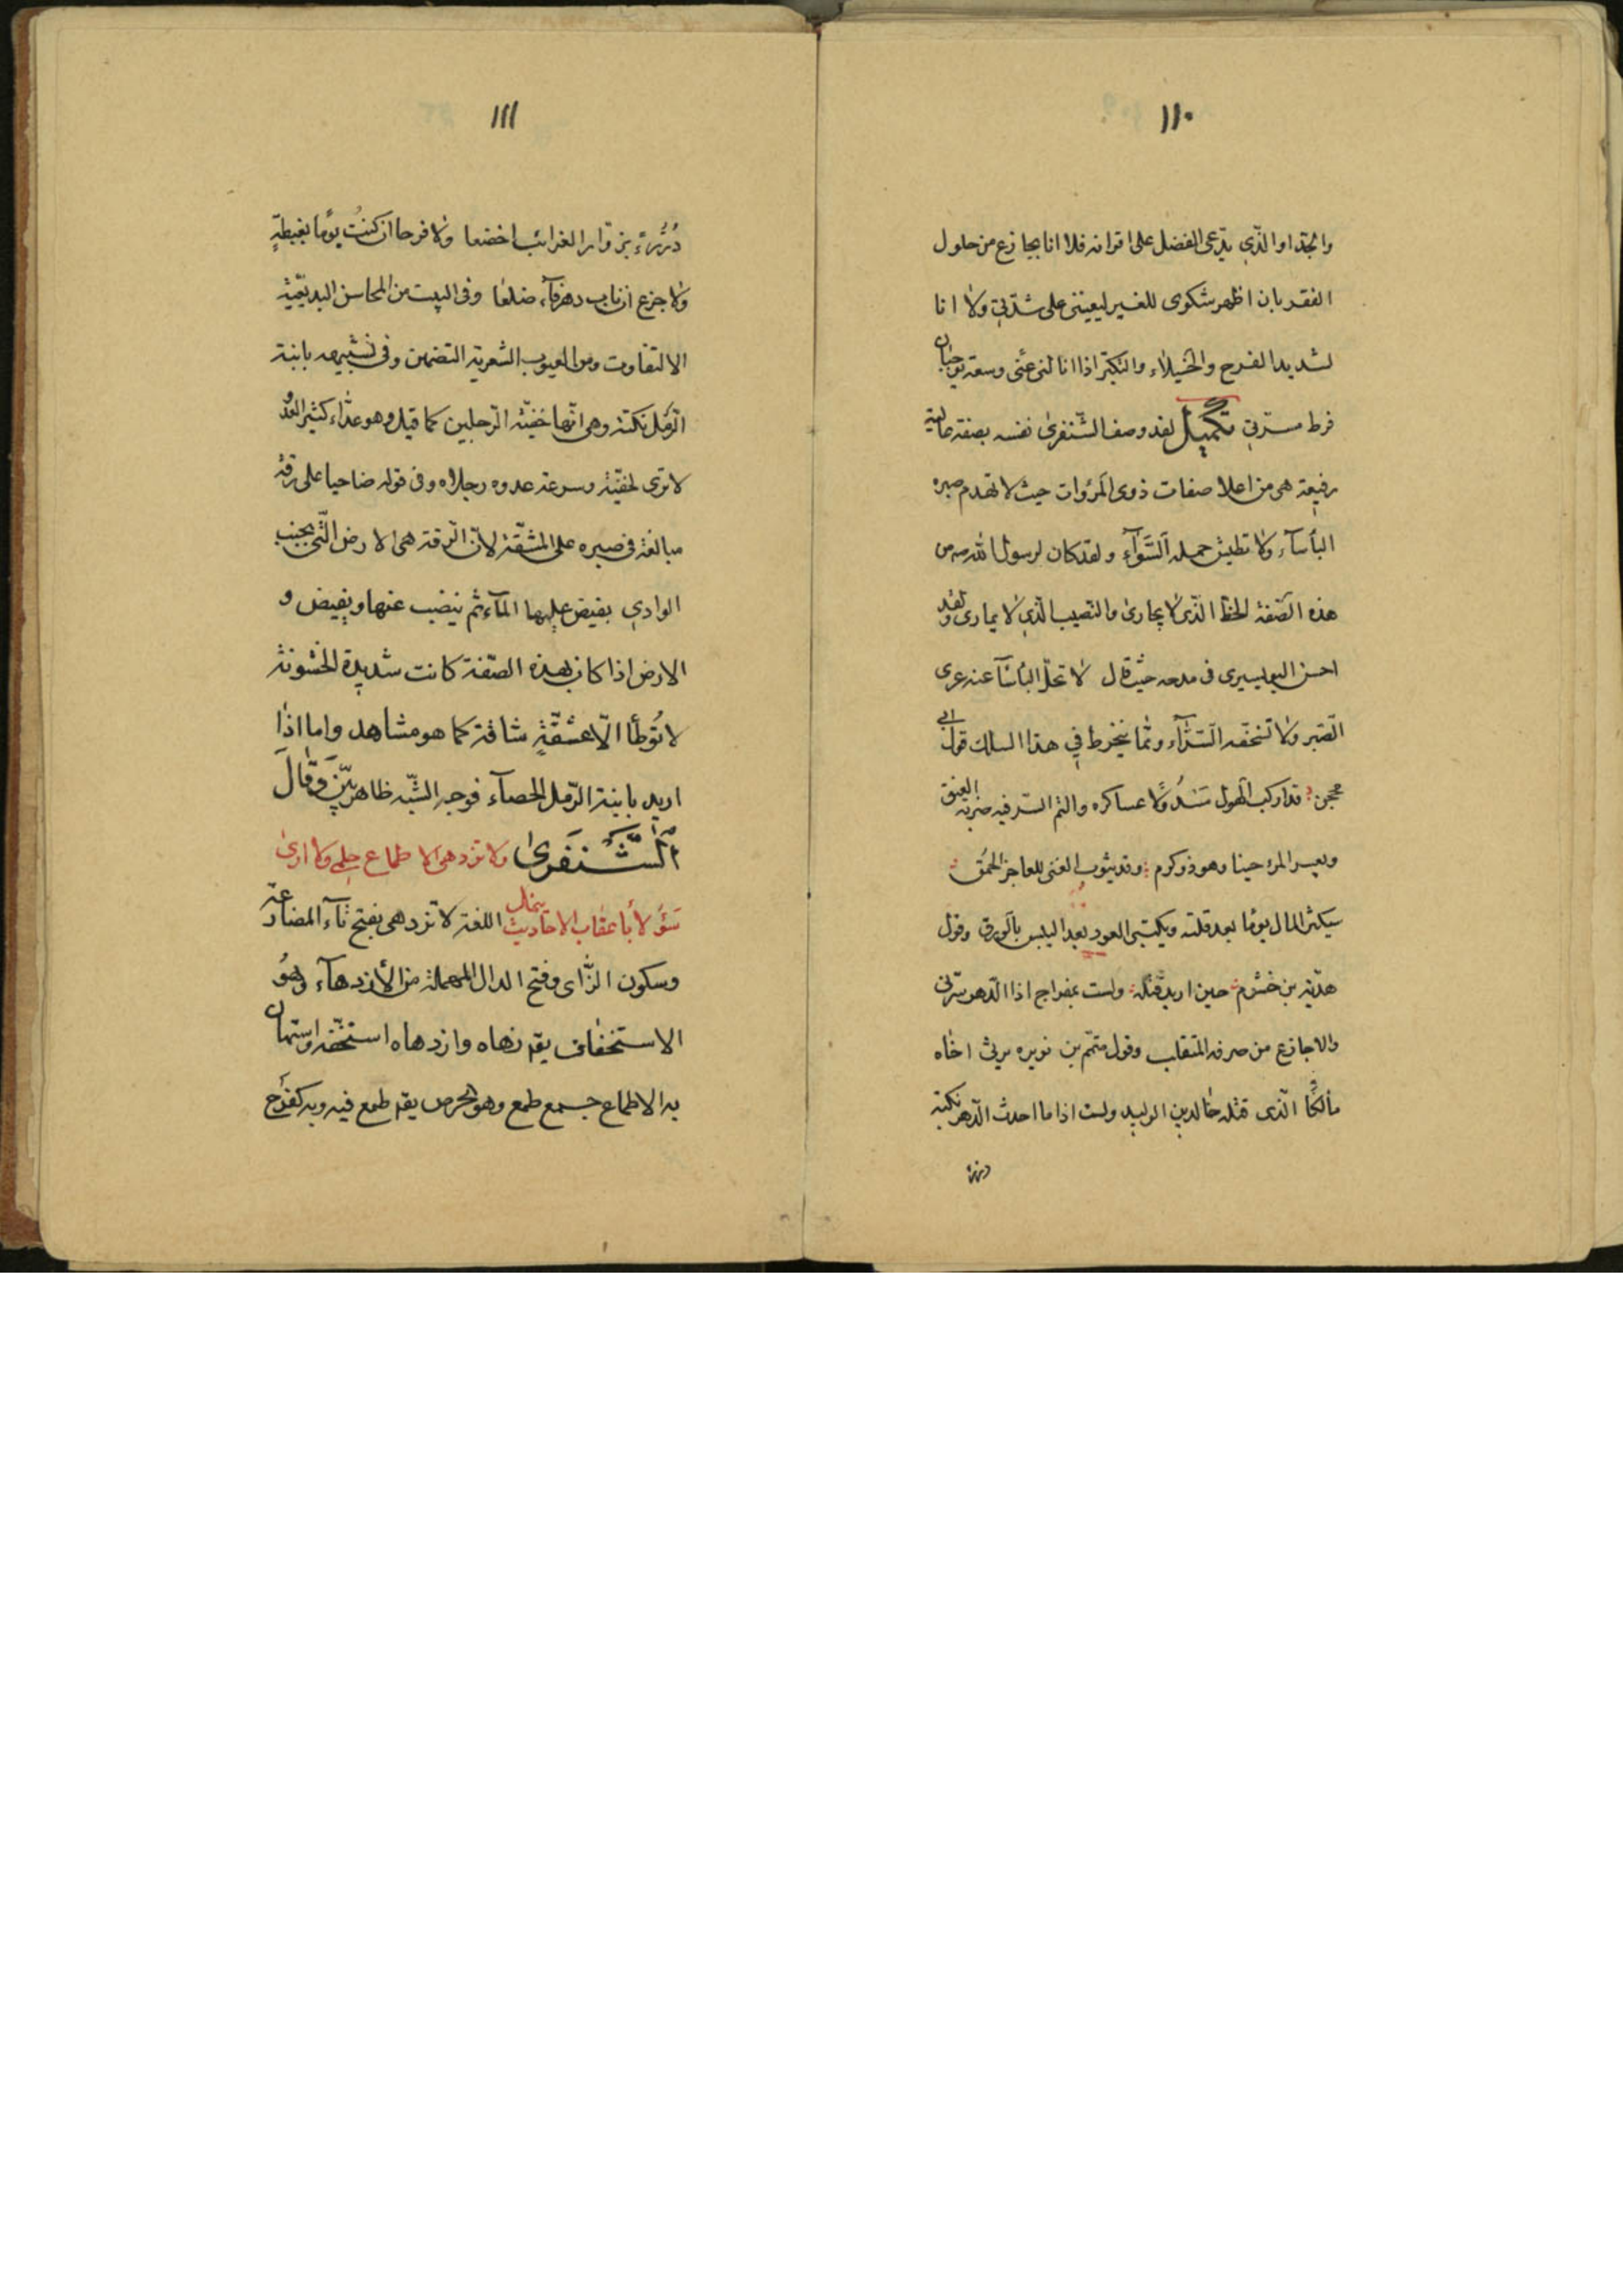 ١١٠
والجدا والذي يدّعى الفضل على اقرانه فلا انا بجازع من حلول
الفقر بان اظهر شكوى للغير ليعيننى على شدّتي ولا انا
لشديد الفرح والخيلاء والتكبّر اذا انا لنى غنى وسعة يوجبان
فرط مسرّتي تكميل لقد وصف الشّنفرىٰ نفسه بصفة عالية
رفيعة هى من اعلا صفات ذوى المرؤات حيث لا تهدم صبره
البأسآء ولا تطيش حمله السّرّآء ولقد كان لرسول الله ص من
هذه الصّفة الحظ الّذى لا يجارىٰ والنّصيب الّذي لا يمارى ولقد
احسن البوصيرى فى مدحه حيث قال لا تحلّ البأسآ عنه عرى
الصّبر ولا تستخفّه السّرّآء وممّا ينخرط في هذا السلك قول ابي
محجن قد اركب الهول مسدولا عساكره واكتم السّر فيه ضربة العنق
ويعسر المرء حينا وهو ذو كرم وقد يثوب الغنى للعاجز الحمق
سيكثر المال يومًا بعد قلته ويكتسى العود بعد اليبس بالورق وقول
هدبة بن خشرم حين اريد قتله ولست بمفراح اذا الدّهر سرّنى
ولا جازع من صرفه المتقلب وقول متمّم بن نويره يرثى اخاه
مالكًا الّذى قتله خالد بن الوليد ولست اذا ما احدث الدّهر نكبة
١١١
بزوّار الغرائب اخضعا ولا فرحا ان كنتُ يومًا بغبطةٍ
ولا جزع ان ناب دهر فآء ضلعا وفى البيت من المحاسن البديعيّة
الالتفاوت ومن العيوب الشعرية التضمين وفى تشبيهه بابنة
الرّمل نكتة وهى انّها خفيّة الرّجلين كما قيل وهو عدّاء كثير العدو
لا ترى لخفيّة وسرعة عدوه رجلاه وفى قوله ضاحيا على رقة
مبالغة فى صبره على المشقّة لانّ الرّقة هى الارض الّتى بجنب
الوادي يفيض عليها المآء ثم ينضب عنها ويفيض و
الارض اذا كان بهذه الصّفة كانت شديدة الخشونة
لا تُوطأ الّا بمشقّةٍ شاقة كما هو مشاهد واما اذا
اريد بابنة الرّمل الحصآء فوجه الشّبه ظاهر بيّن وقَالَ
الشَّنفَرىٰ ولا تزدهى الاطماع حلمي ولا ارىٰ
سَؤُلا بأعقاب الاحاديث ينمل اللغة لا تزدهى بفتح تآء المضارعة
وسكون الزّاى وفتح الدال المهملة من الأزدهآء وهُو
الاستخفاف يقم زهاه وازدهاه استخفّه واستهان
به الاطماع جمع طمع وهو الحرص يقم طمع فيه وبه كفرَح